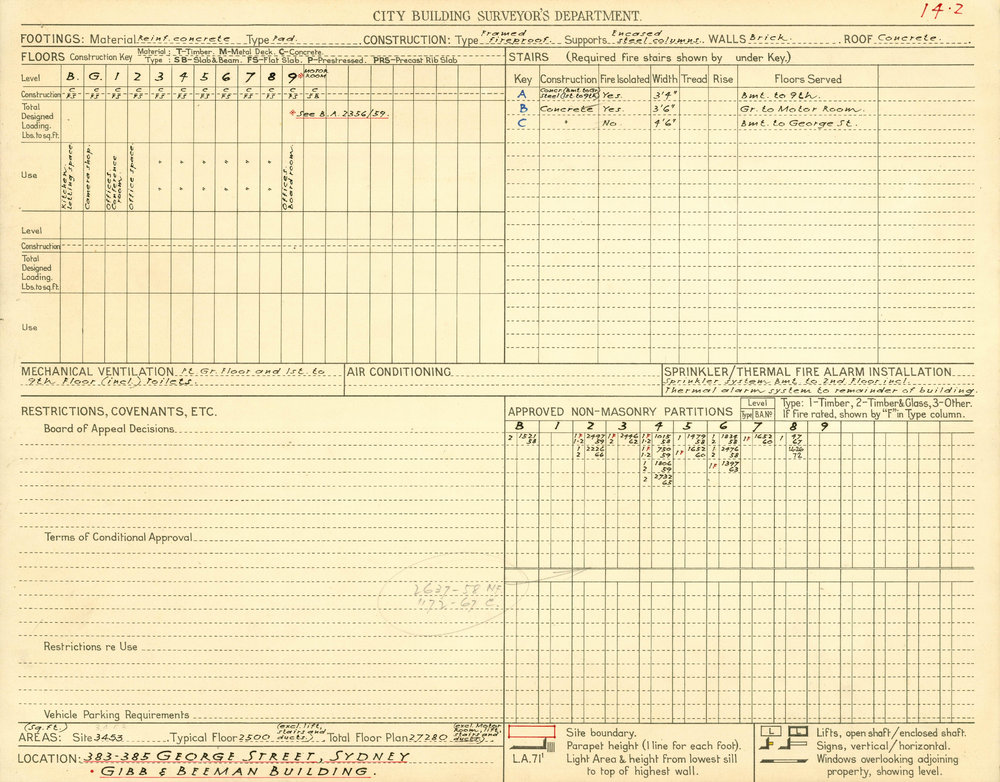 14.2
CITY BUILDING SURVEYOR'S DEPARTMENT.
FOOTINGS: Material Reinf. concrete Type Pad. CONSTRUCTION: Type Framed fireproof. Supports Encased steel columns. WALLS Brick. ROOF Concrete.
FLOORS Construction Key Material: T-Timber, M-Metal Deck, C-Concrete.
Type: SB-Slab & Beam, FS-Flat Slab, P-Prestressed, PRS-Precast Rib Slab
Level B. G. 1 2 3 4 5 6 7 8 9 MOTOR ROOM
Construction C FS C FS C FS C FS C FS C FS C FS C FS C FS C FS C FS C SB
Total Designed Loading. Lbs. to sq. ft.
* See B.A. 2356/59.
Use
Kitchen, letting space.
Camera shop.
Offices Conference room
Office space.
" " " " " "
" " " " " "
Offices. Board room.
Level
Construction
Total Designed Loading. Lbs. to sq. ft.
Use
STAIRS (Required fire stairs shown by under Key.)
Key Construction Fire Isolated Width Tread Rise Floors Served
A Concr (Bmt. to Gr) Steel (1st to 9th) Yes. 3'4" Bmt. to 9th.
B Concrete Yes. 3'6" Gr. to Motor Room.
C " No. 4'6" Bmt. to George St.
MECHANICAL VENTILATION Pt. Gr. Floor and 1st. to
9th Floor (incl.) Toilets.
AIR CONDITIONING
SPRINKLER/THERMAL FIRE ALARM INSTALLATION
Sprinkler system Bmt to 2nd Floor incl.
Thermal alarm system to remainder of building.
RESTRICTIONS, COVENANTS, ETC.
Board of Appeal Decisions
Terms of Conditional Approval
2637-58 NF
1172-67 C.
Restrictions re Use
Vehicle Parking Requirements
APPROVED NON-MASONRY PARTITIONS Level Type B.A. Nº Type: 1-Timber, 2-Timber & Glass, 3-Other. If fire rated, shown by "F" in Type column.
B 1 2 3 4 5 6 7 8 9
2 1521/58 1F 1·2 2497/59 1F 2 2446/62 1F 1·2 1015/58 1 1479/58 1F 2 1834/58 1F 1652/60 1 97/67
1 2 2226/66 1F 1·2 750/59 1F 1652/60 1 2 2476/58 1626/72
1 2 1806/59 1F 1397/63
2 2732/65
(Sq. ft.) 3453
AREAS: Site 3453 Typical Floor 2500 (excl. lift, stairs and ducts) Total Floor Plan 27280 (excl. Motor Room, lift, stairs and ducts)
LOCATION: 383-385 GEORGE STREET, SYDNEY
• GIBB & BEEMAN BUILDING.
Site boundary.
Parapet height (1 line for each foot).
L.A.71' Light Area & height from lowest sill to top of highest wall.
L Lifts, open shaft/enclosed shaft.
Signs, vertical/horizontal.
Windows overlooking adjoining property, showing level.